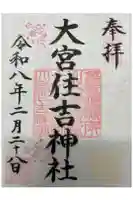 奉拝
大宮住吉神社
令和八年二月二十八日